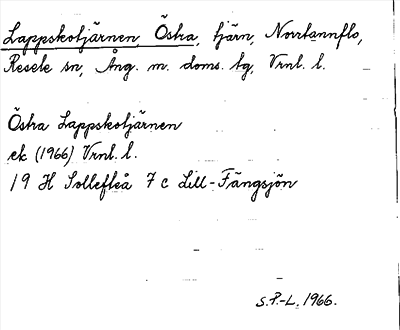 Lappskotjärnen, Östra, tjärn, Norrtannflo,
Resele sn, Ång. m. doms. tg, Vrnl. l.
Östra Lappskotjärnen
ek (1966) Vrnl. l.
19 H Sollefteå 7 c Lill-Fängsjön
S.P.-L. 1966.